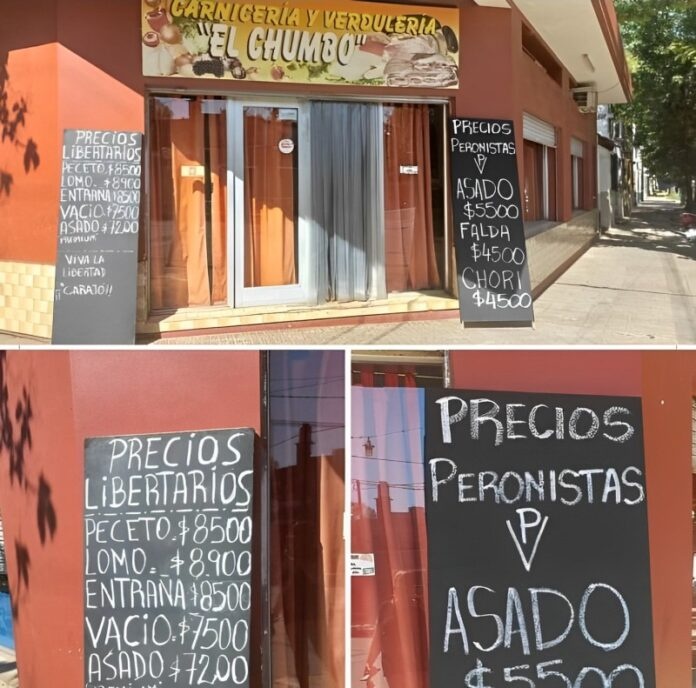 CARNICERÍA Y VERDULERÍA
"EL CHUMBO"
PRECIOS
LIBERTARIOS
PECETO. $8500
LOMO. $8900
ENTRAÑA $8500
VACIO $7500
ASADO $72,00
PREMIUM
VIVA LA
LIBERTAD
¡¡CARAJO!!
PRECIOS
PERONISTAS
PV
ASADO
$5500
FALDA
$4500
CHORI
$4500
PRECIOS
LIBERTARIOS
PECETO. $8500
LOMO. $8,900
ENTRAÑA $8500
VACIO. $7500
ASADO $72,00
PRECIOS
PERONISTAS
PV
ASADO
$5500